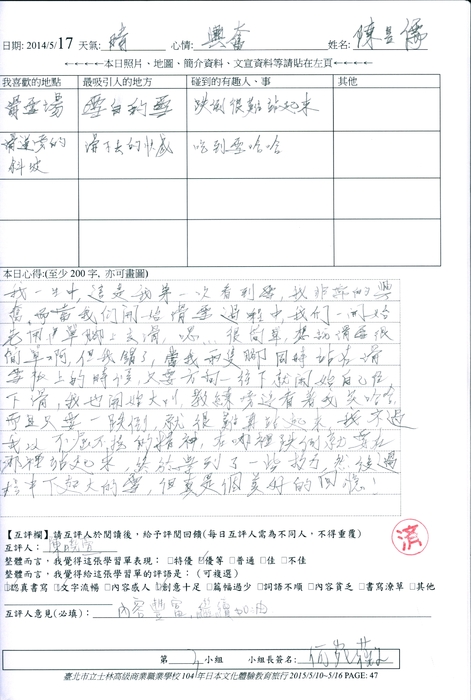 日期: 2014/5/17 天氣: 晴 心情: 興奮 姓名: 陳
←←←←本日照片、地圖、簡介資料、文宣資料等請貼在左頁←←←←
我喜歡的地點 最吸引人的地方 碰到的有趣人、事 其他
滑雪場 雪白的雪 跌倒很難站起來
滑雪的 滑下去的快感 吃到雪哈哈
斜坡
本日心得:(至少 200 字, 亦可畫圖)
我一生中,這是我第一次看到雪,我非常的興
奮,我們開始滑雪過程中,我們一開始
先用單腳上去滑,恩...很簡單,想說滑雪很
簡單啊,但我錯了,當我兩隻腳同時站在滑
雪板上的時候,只要方向一往下就開始自己往
下滑,我也開始大叫,教練旁邊看著我笑哈哈
而且只要一跌倒,就很難再站起來,我
我以不屈不撓的精神,在哪裡跌倒就要在
那裡站起來,終於學到了一些技巧,然後過
程中下起大的雪,但真是個美好的回憶!
【互評欄】請互評人於閱讀後,給予評閱回饋(每日互評人需為不同人,不得重覆)
互評人: 陳
整體而言,我覺得這張學習單表現: □特優 □優等 □普通 □佳 □不佳
整體而言,我覺得給這張學習單的評語是: (可複選)
□認真書寫 □文字流暢 □內容感人 □創意十足 □篇幅過少 □詞語不順 □內容貧乏 □書寫潦草 □其他
互評人意見(必填): 內容豐富,繼續加油
第 小組 小組長簽名:
臺北市立士林高級商業職業學校 104 年日本文化體驗教育旅行 2015/5/10~5/16 PAGE: 47